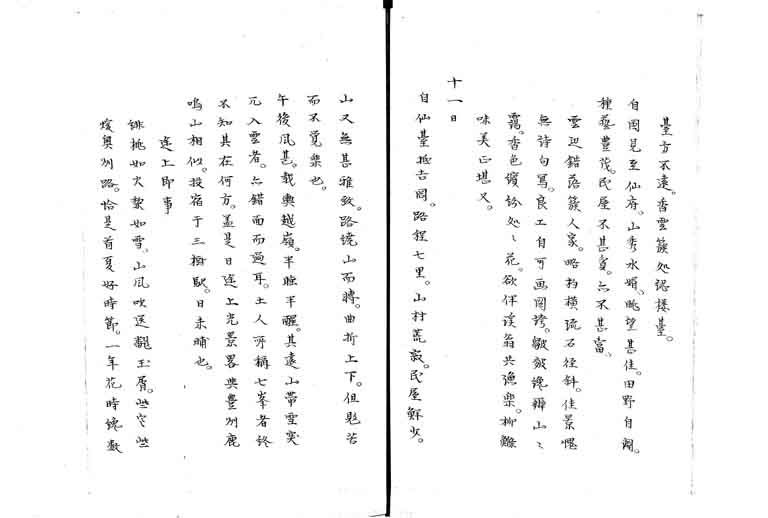 臺方不遠。香雲簇処認樓臺。
自関見至仙府。山秀水媚。眺望甚佳。田野自闢。
種藝豊茂。民屋不甚貧。亦不甚富。
雲辺錯落簇人家。略彴横流石径斜。佳景慳
無詩句写。良工自可画図誇。皺皴纔辨山〻
靄。香色繽紛処〻花。欲伴渓翁共漁樂。柳
味美正堪叉。
十一日
自仙臺抵吉岡。路程七里。山村荒寂。民屋鮮少。
山又無甚雅致。路遶山而轉。曲折上下。但覺苦
而不覚樂也。
午後風甚。載輿越嶺。半睡半醒。其遠山帶雪突
兀入雲者。亦錯面而過耳。土人所稱七峯者終
不知其在何方。盖是日途上光景畧與豊州鹿
鳴山相似。投宿于三駅。日未晡也。
途上即事
緋桃如火梨如雪。山風吹送飜玉屑。
奥州路。恰是首夏好時節。一年花時纔数